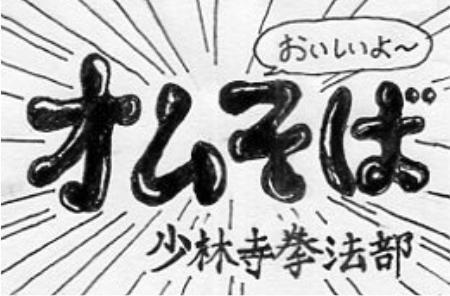 おいしいよ～
オムそば
少林寺拳法部